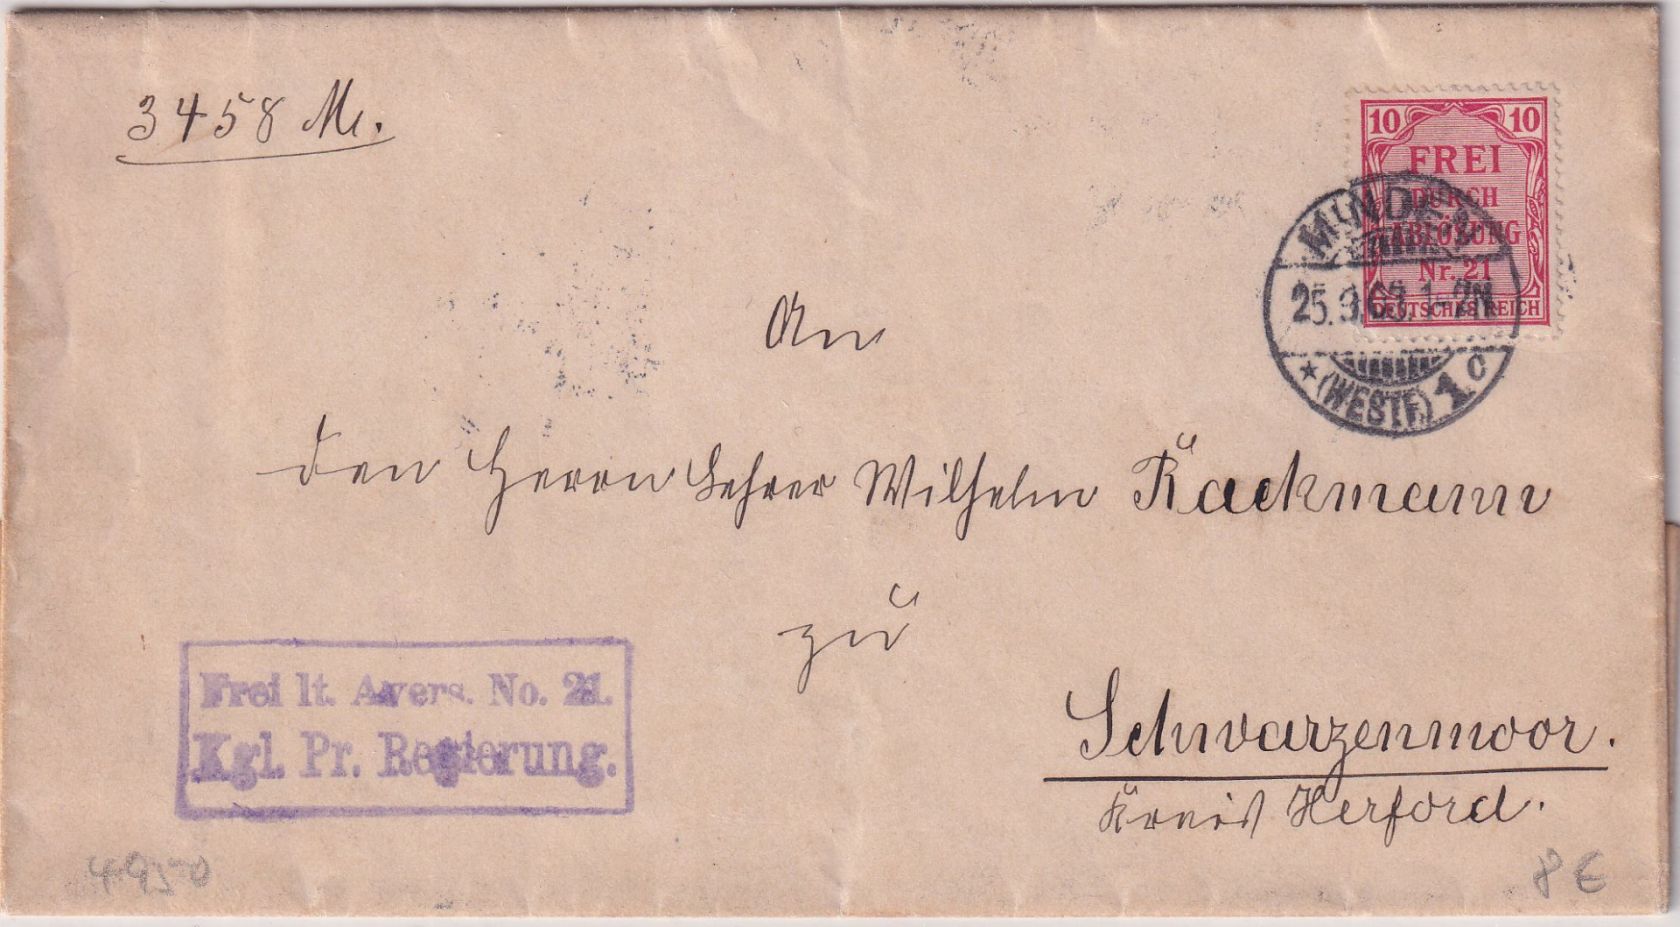 3458 M.
10 10
FREI
DURCH
ABLÖSUNG
Nr. 21
DEUTSCHES REICH
MINDEN
25.9.03.1-2N
* (WESTF.) 1 c
An
den Herrn Lehrer Wilhelm Rackmann
zu
Schwarzenmoor.
Kreis Herford.
Frei lt. Avers. No. 21.
Kgl. Pr. Regierung.
4950
8 €